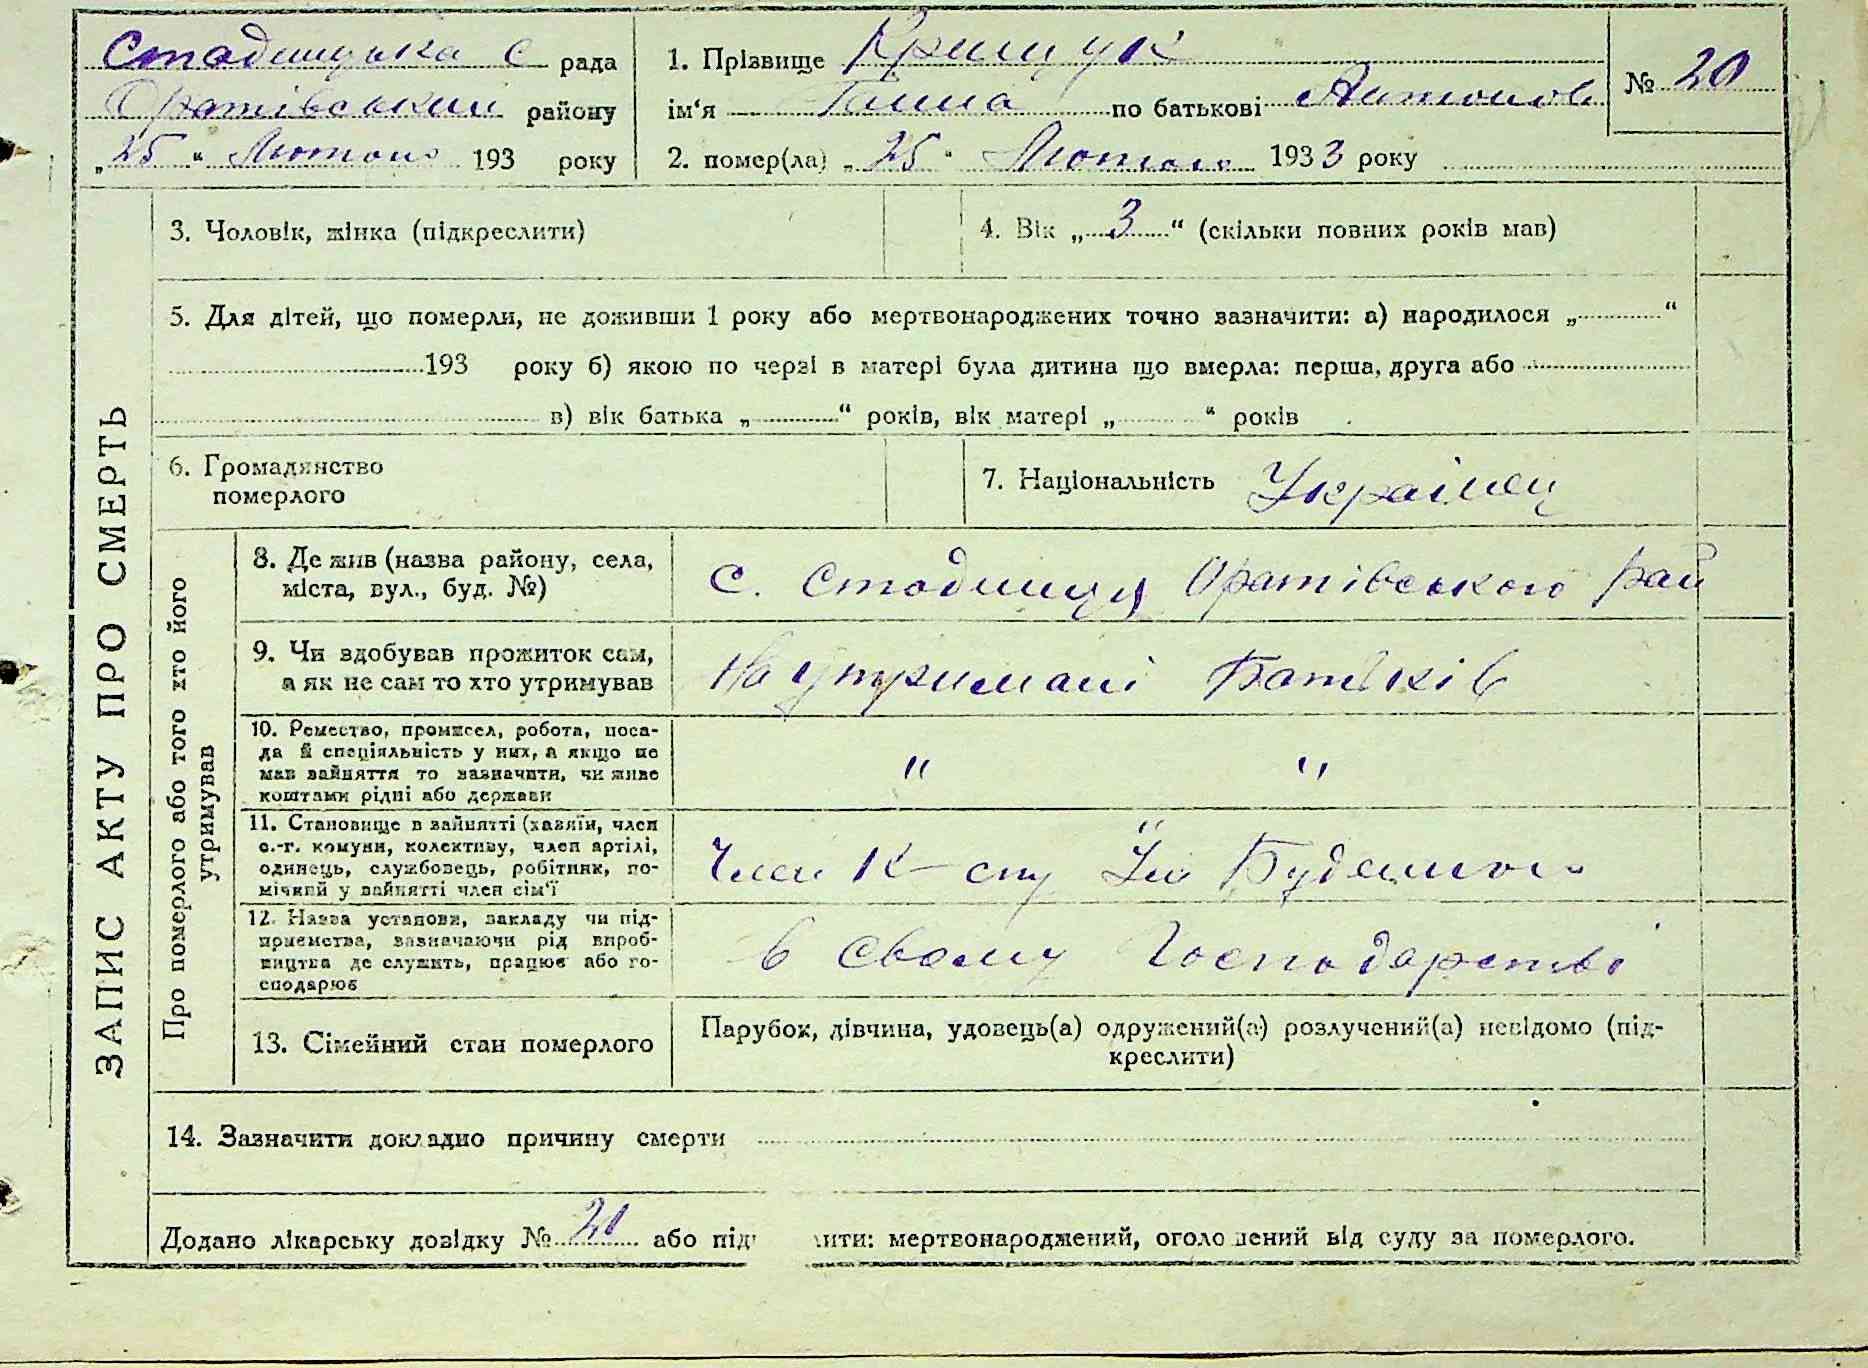 Стадницька с рада
Оратівський району
„25“ Лютого 193 року
1. Прізвище Крищук
ім‘я Ганна по батькові Антонов
2. помер(ла) „25“ Лютого 1933 року
№ 20
ЗАПИС АКТУ ПРО СМЕРТЬ
3. Чоловік, жінка (підкреслити)
4. Вік „3“ (скільки повних років мав)
5. Для дітей, що померли, не доживши 1 року або мертвонароджених точно зазначити: а) народилося „ “
193 року б) якою по черзі в матері була дитина що вмерла: перша, друга або
в) вік батька „ “ років, вік матері „ “ років
6. Громадянство
померлого
7. Національність Українец
Про померлого або того хто його
утримував
8. Де жив (назва району, села,
міста, вул., буд. №)
с. Стадниця Оратівського рай
9. Чи здобував прожиток сам,
а як не сам то хто утримував
На утримані Батьків
10. Ремество, промисел, робота, поса-
да й спеціяльність у них, а якщо не
мав зайняття то зазначити, чи живе
коштами рідні або держави
" "
11. Становище в зайнятті (хазяїн, член
с.-г. комуни, колективу, член артілі,
одинець, службовець, робітник, по-
мічний у зайнятті член сім‘ї
Член К-спу Ім Буденого
12. Назва установи, закладу чи під-
приємства, зазначаючи рід вироб-
ництва де служить, працює або го-
сподарює
в свому Господарстві
13. Сімейний стан померлого
Парубок, дівчина, удовець(а) одружений(а) розлучений(а) невідомо (під-
креслити)
14. Зазначити докладно причину смерти
Додано лікарську довідку № 20 або під ити: мертвонароджений, оголошений від суду за померлого.